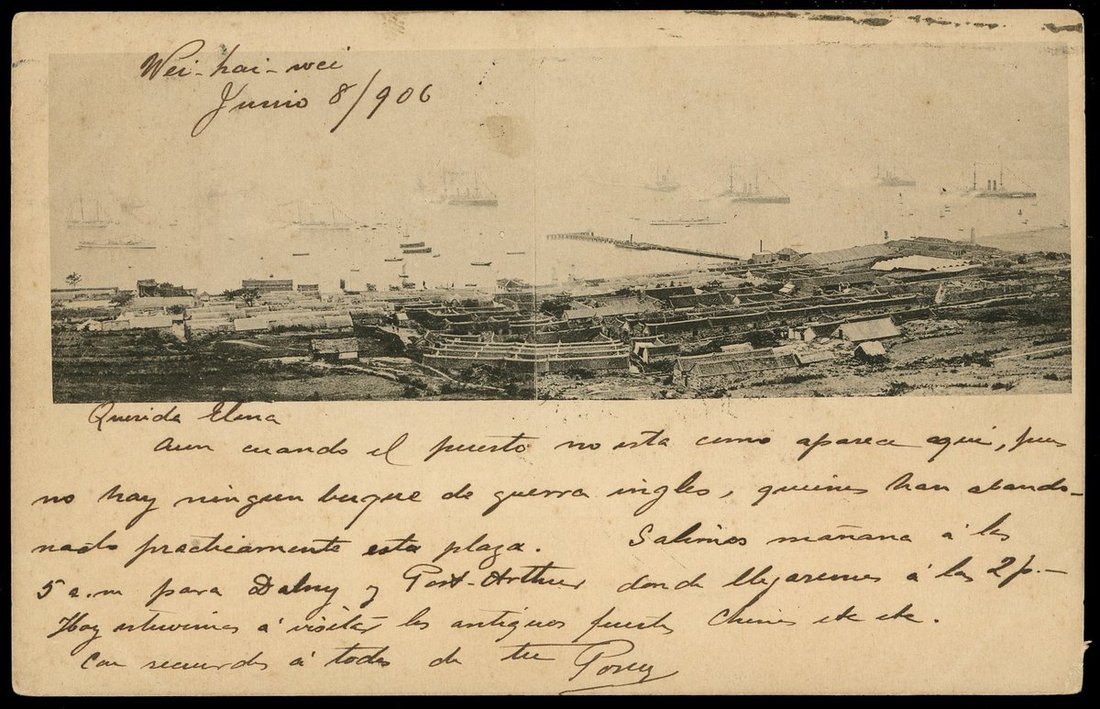 Wei-hai-wei
Junio 8/906
Querida Elena
Aun cuando el puerto no esta como aparece aqui, pues
no hay ningun buque de guerra ingles, quienes han abando-
nado practicamente esta plaza. Salimos mañana á las
5 a.m para Dalny y Port-Arthur donde llegaremos á las 2 p.-
Hoy estuvimos á visitar los antiguos fuertes Chinos etc etc.
Con recuerdos á todos de tu